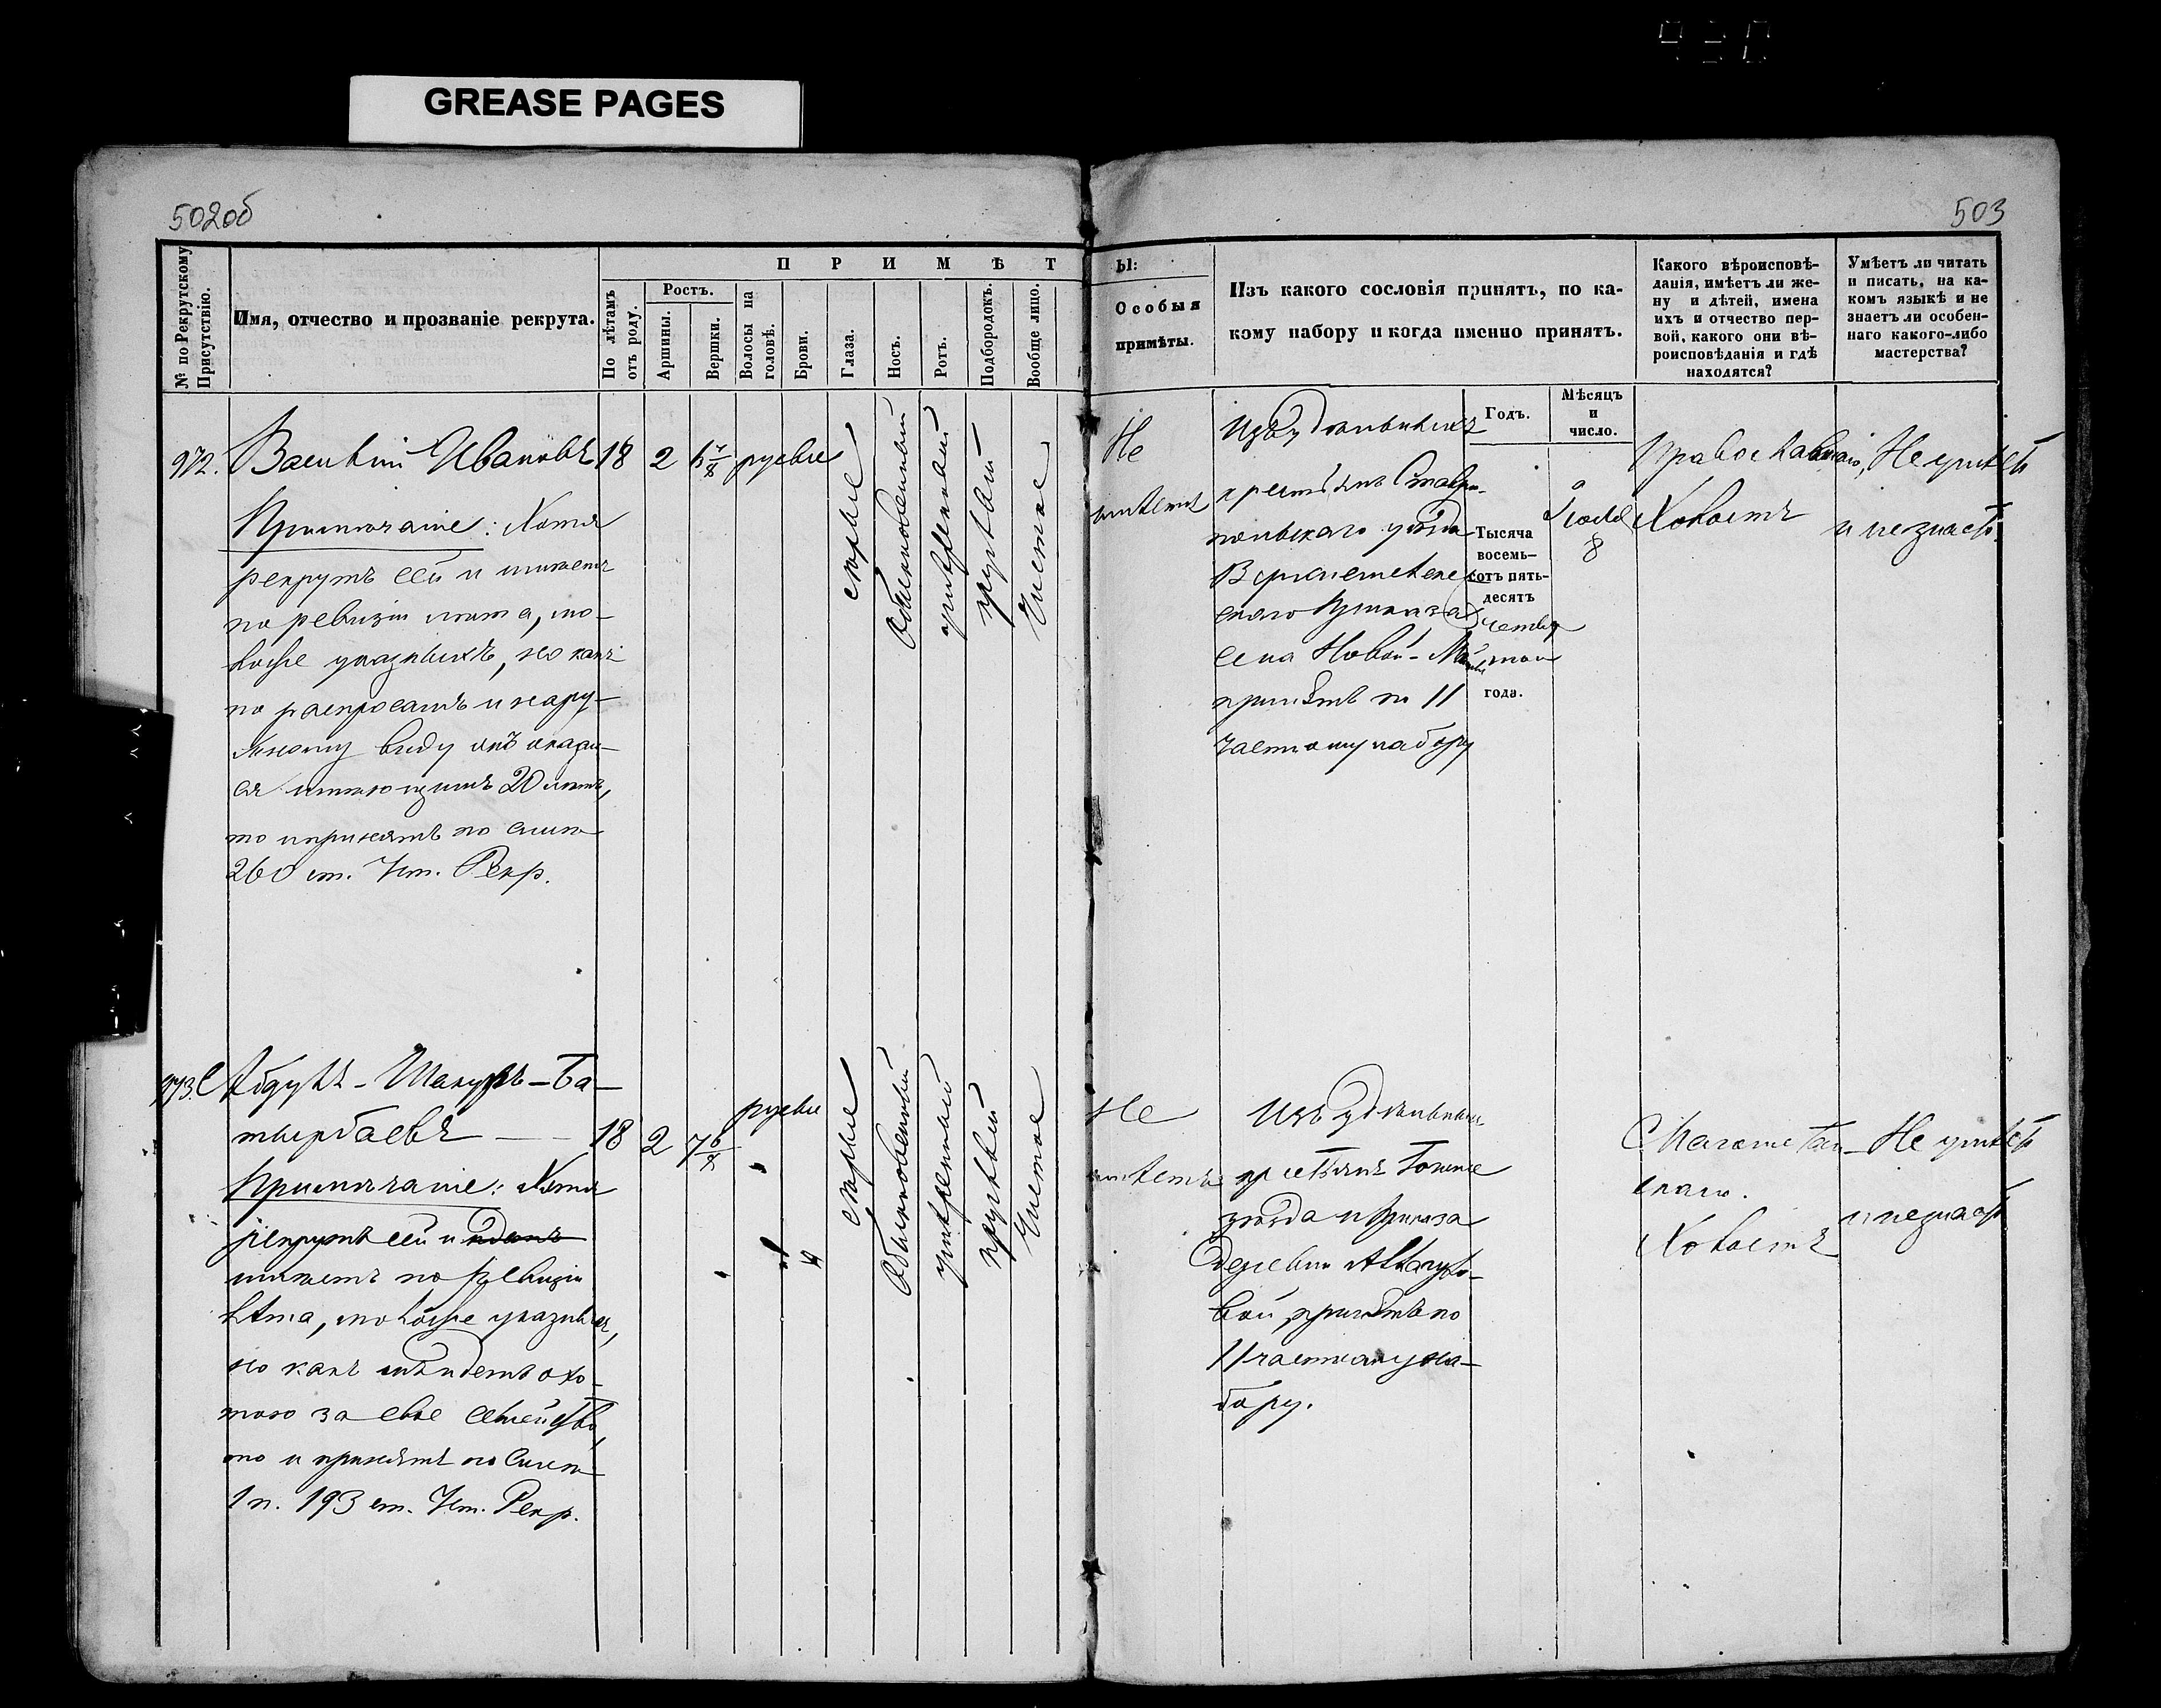 GREASE PAGES
502об
503
№ по Рекрутскому Присутствію.
Имя, отчество и прозваніе рекрута.
ПРИМѢТ
По лѣтамъ отъ роду.
Ростъ.
Аршины.
Вершки.
Волосы на головѣ.
Брови.
Глаза.
Носъ.
Ротъ.
Подбородокъ.
Вообще лицо.
Ы:
Особыя
примѣты.
Изъ какого сословія принятъ, по ка-
кому набору и когда именно принятъ.
Какого вѣроисповѣ-
данія, имѣетъ ли же-
ну и дѣтей, имена
ихъ и отчество пер-
вой, какого они вѣ-
роисповѣданія и гдѣ
находятся?
Умѣетъ ли читать
и писать, на ка-
комъ языкѣ и не
знаетъ ли особен-
наго какого-либо
мастерства?
Годъ.
Мѣсяцъ
и
число.
972. Василий Ивановъ 18 2 русые
Примѣчаніе: Хотя
рекрутъ сей и имѣетъ
по ревизіи лѣта,
указныхъ, но какъ
по распросамъ и нару-
жному виду онъ оказал-
ся имѣющимъ 20 лѣтъ,
то и принятъ по силѣ
260 ст. Уст. Рекр.
сѣрые
Обыкновенный
умѣренный
круглый
Чистое
Не
имѣетъ
Изъ удѣльныхъ
крестьянъ Ставро-
польскаго уѣзда
скаго Приказа
села Новой-
принятъ по 11
частному набору
Тысяча
восемь-
сотъ пять-
десятъ
четвер
таго
года.
8
Православнаго,
Холостъ
Не умѣетъ
и не знаетъ.
973. Абдулъ-Шакуръ-Ба-
тырбаевъ 18 2 7 6/8 русые
Примѣчаніе: Хотя
рекрутъ сей и
имѣетъ по Ревизіи
лѣта, указныхъ,
но какъ идетъ охо-
тою за свое семейство,
то и принятъ по силѣ
1 п. 193 ст. Уст. Рекр.
сѣрые
Обыкновенный
умѣренный
круглый
Чистое
Не
имѣетъ
Изъ удѣльныхъ
крестьянъ
уѣзда и Приказа
Деревни
вой, принятъ по
11 частному на-
бору.
Магометан-
скаго.
Холостъ
Не умѣетъ
и не знаетъ